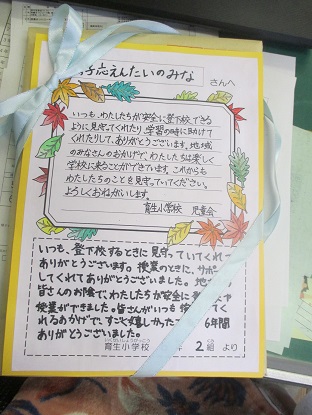 子応えんたいのみな さんへ
いつも、わたしたちが安全に登下校できる
ように見守ってくれたり、学習の時に助けて
くれたりして、ありがとうございます。地域
のみなさんのおかげで、わたしたちは楽しく
学校に来ることができています。これからも
わたしたちのことを見守っていてください。
よろしくおねがいします。
育生小学校 児童会
いつも、登下校するときに見守っていてくれて
ありがとうございます。授業のときに、サポ
してくれてありがとうございました。地
皆さんのお陰で、わたしたちが安全に
授業ができました。皆さんがいつも
れるおかげで、すごく嬉しかった 6年間
ありがとうございました。
いくせいしょうがっこう
育生小学校 2組 より